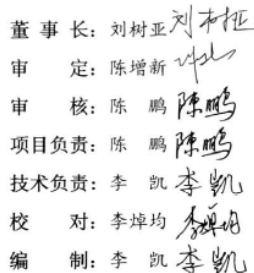 董事长：刘树亚 刘树亚
审定：陈增新
审核：陈鹏 陈鹏
项目负责：陈鹏 陈鹏
技术负责：李凯 李凯
校对：李焯均 李焯均
编制：李凯 李凯